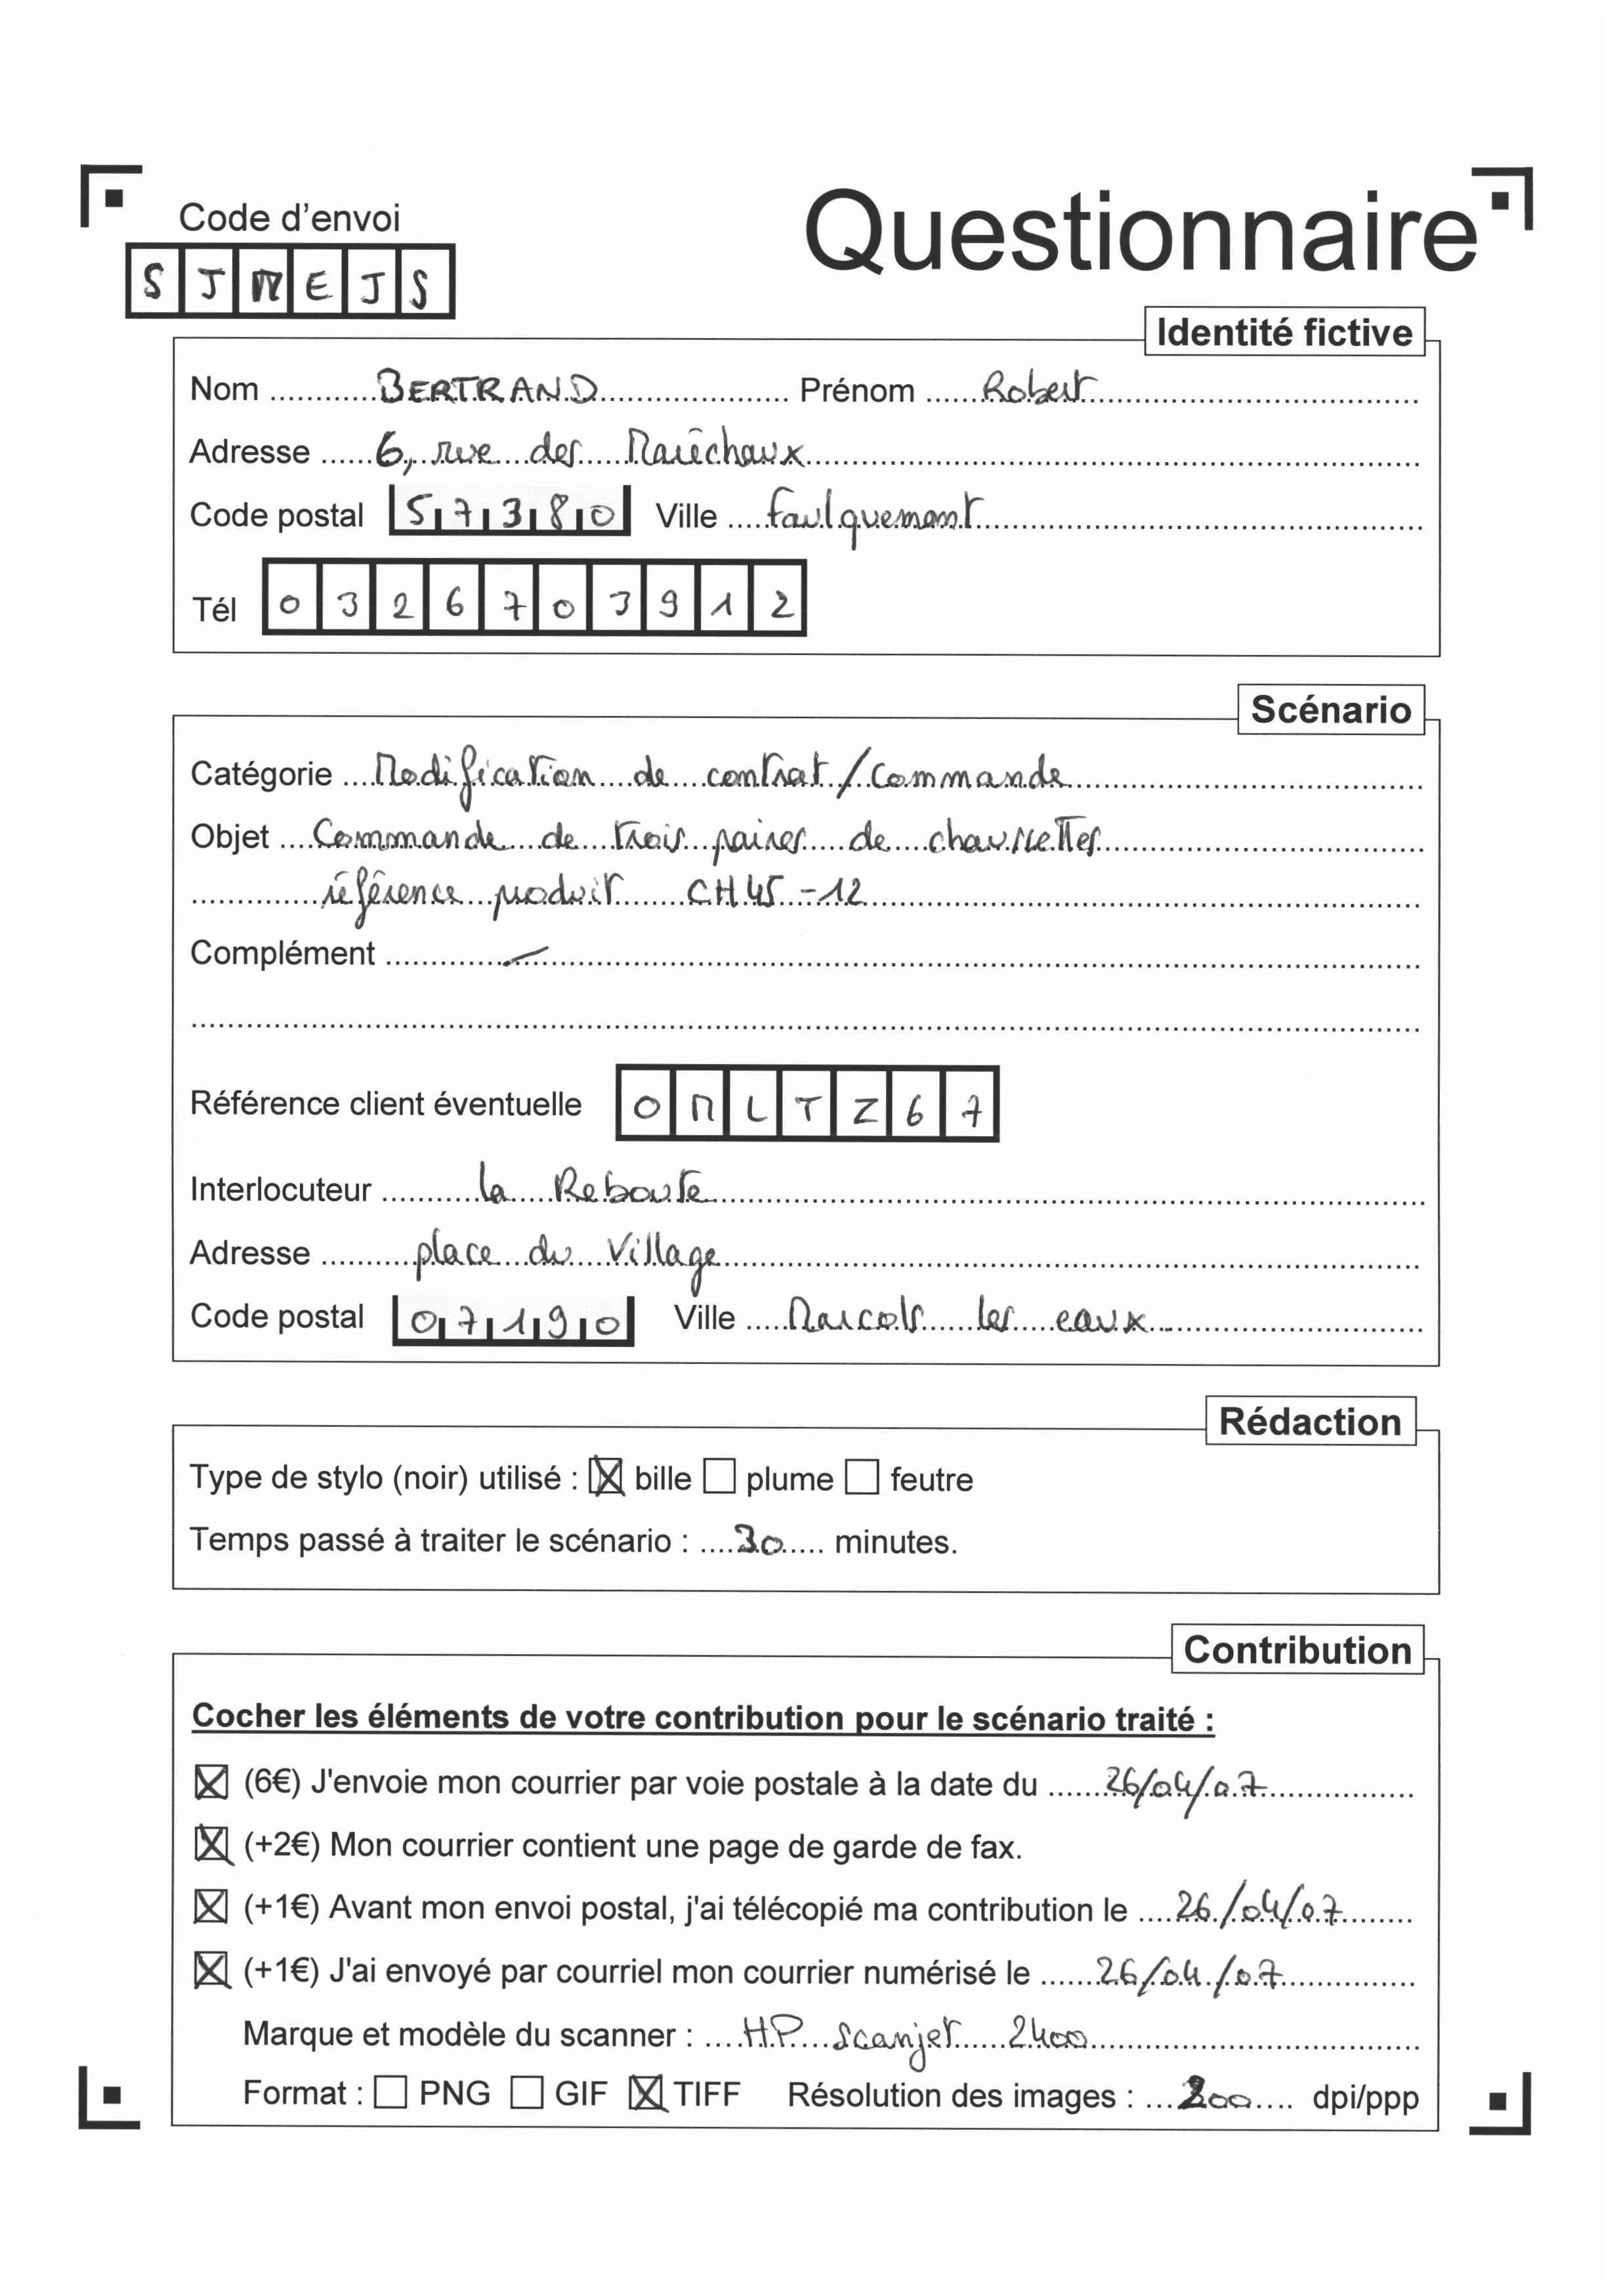 Code d'envoi
Questionnaire
S J M E J S
Identité fictive
Nom BERTRAND Prénom Robert
Adresse 6, rue des Maréchaux
Code postal 57380 Ville Faulquemont
Tél 0326703912
Scénario
Catégorie Modification de contrat / Commande
Objet Commande de trois paires de chaussettes
référence produit CH45-12
Complément —
Référence client éventuelle OMLTZ67
Interlocuteur la Reboute
Adresse place du Village
Code postal 07190 Ville Marcols les eaux
Rédaction
Type de stylo (noir) utilisé : ☒ bille ☐ plume ☐ feutre
Temps passé à traiter le scénario : 30 minutes.
Contribution
Cocher les éléments de votre contribution pour le scénario traité :
☒ (6€) J'envoie mon courrier par voie postale à la date du 26/04/07
☒ (+2€) Mon courrier contient une page de garde de fax.
☒ (+1€) Avant mon envoi postal, j'ai télécopié ma contribution le 26/04/07
☒ (+1€) J'ai envoyé par courriel mon courrier numérisé le 26/04/07
Marque et modèle du scanner : HP Scanjet 2400
Format : ☐ PNG ☐ GIF ☒ TIFF Résolution des images : 200 dpi/ppp